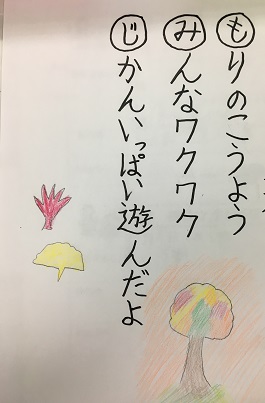 もりのこうよう
みんなワクワク
じかんいっぱい遊んだよ